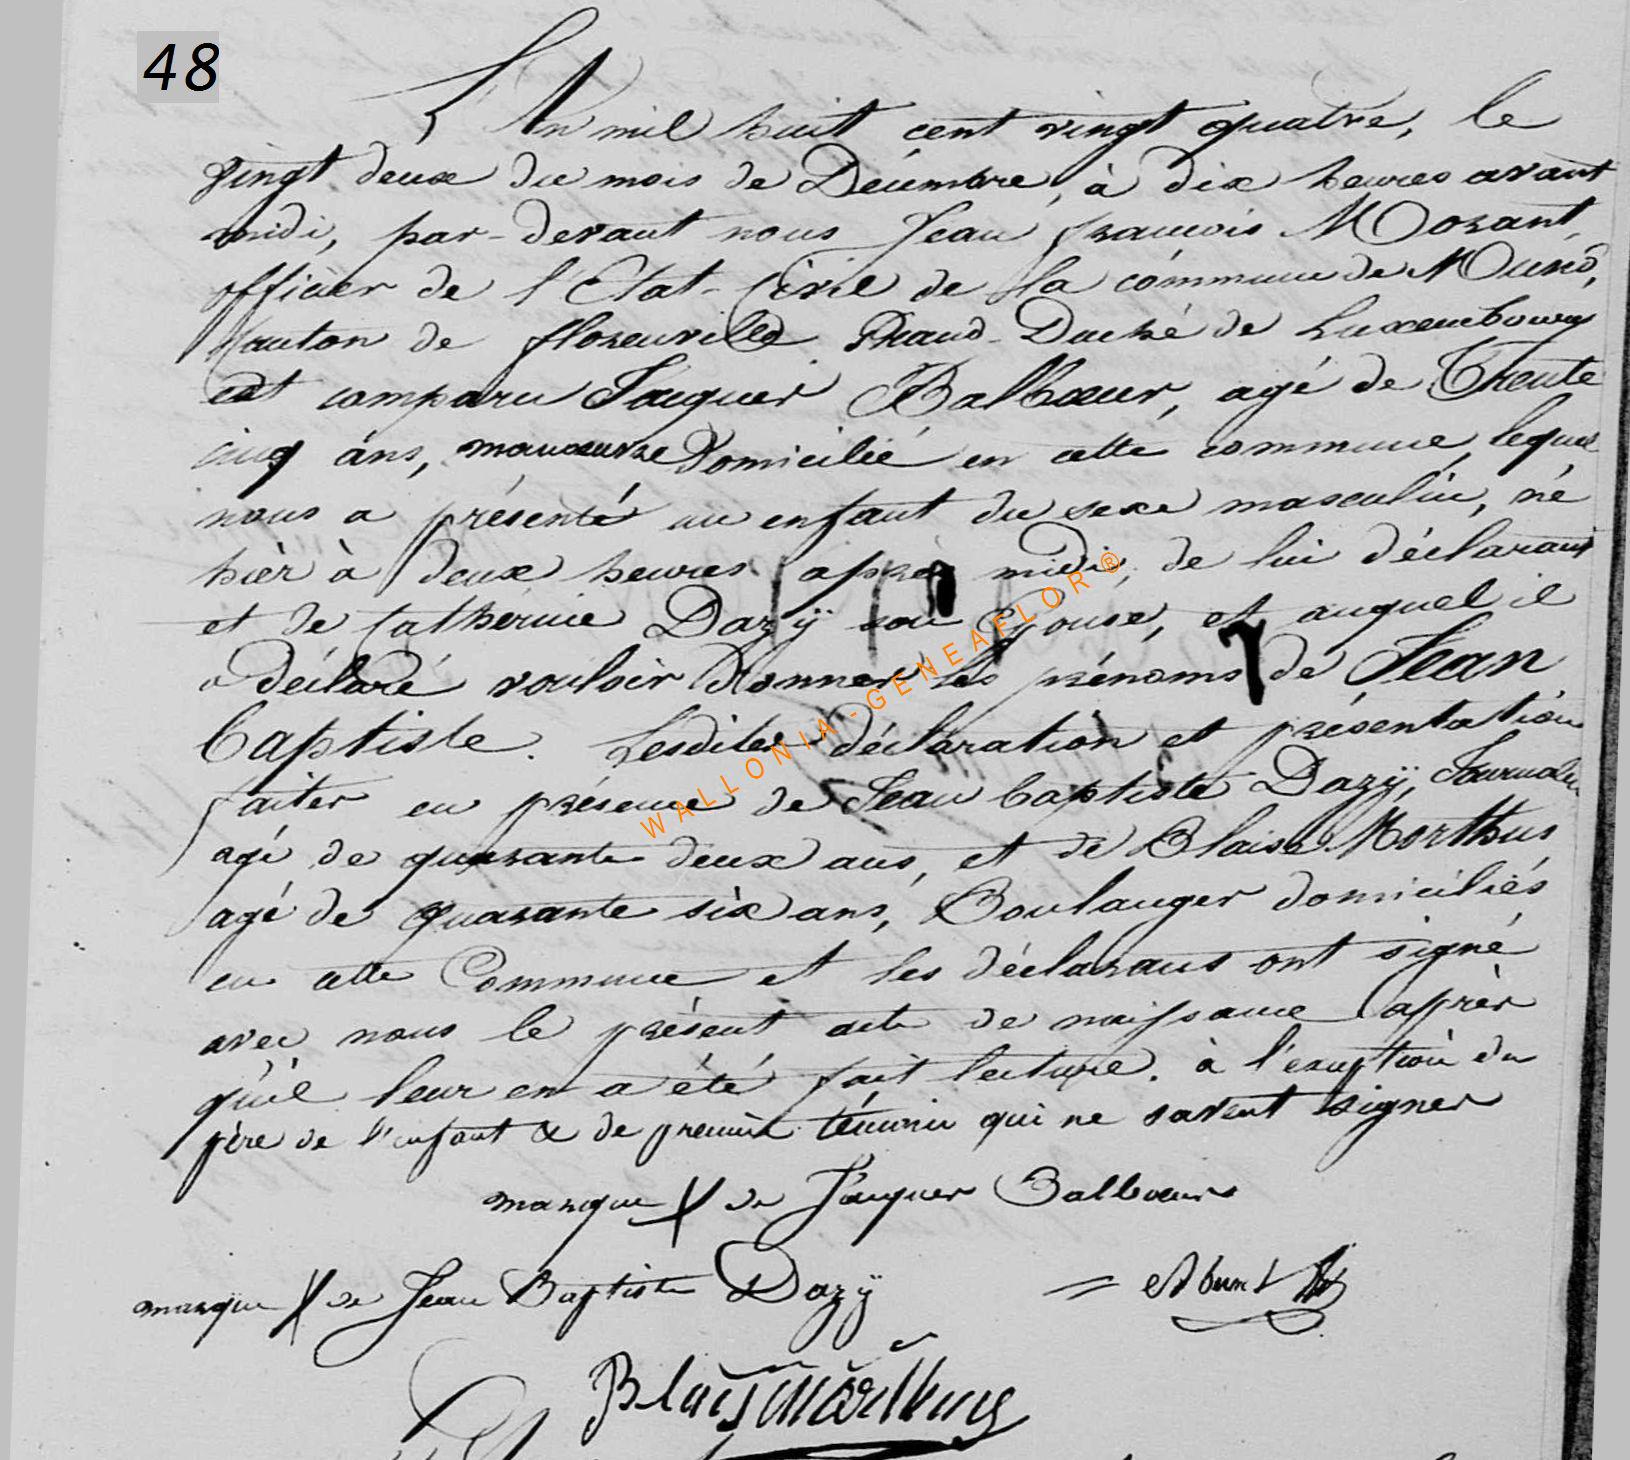 48
L'An mil huit cent vingt quatre, le
vingt deux du mois de Décembre, à dix heures avant
midi, par-devant nous Jean françois Morant,
officier de l'Etat-Civil de la commune de Muno,
Canton de florenville Grand-Duché de Luxembourg
est comparu Jacques Balbœur, agé de Trente
cinq ans, manœuvre Domicilié en cette commune, lequel
nous a présenté un enfant du sexe masculin, né
hièr à deux heures après midi, de lui déclarant
et de Cathérine Dazÿ son Epouse, et auquel il
a déclaré vouloir Donner les prénoms de Jean
Baptiste. Lesdites déclaration et présentation
faites en présence de Jean Baptiste Dazÿ, Journalier
agé de quarante deux ans, et de Blaise Morthus
agé de quarante six ans, Boulanger domiciliés
en cette Commune et les déclarans ont signé
avec nous le présent acte de naissance après
qu'il leur en a été fait lecture. à l'exception du
père de l'enfant & de premier témoin qui ne savent signer
marque X de Jacques Balbœur
marque X de Jean Baptiste Dazÿ
WALLONIA-GENEAFLOR®